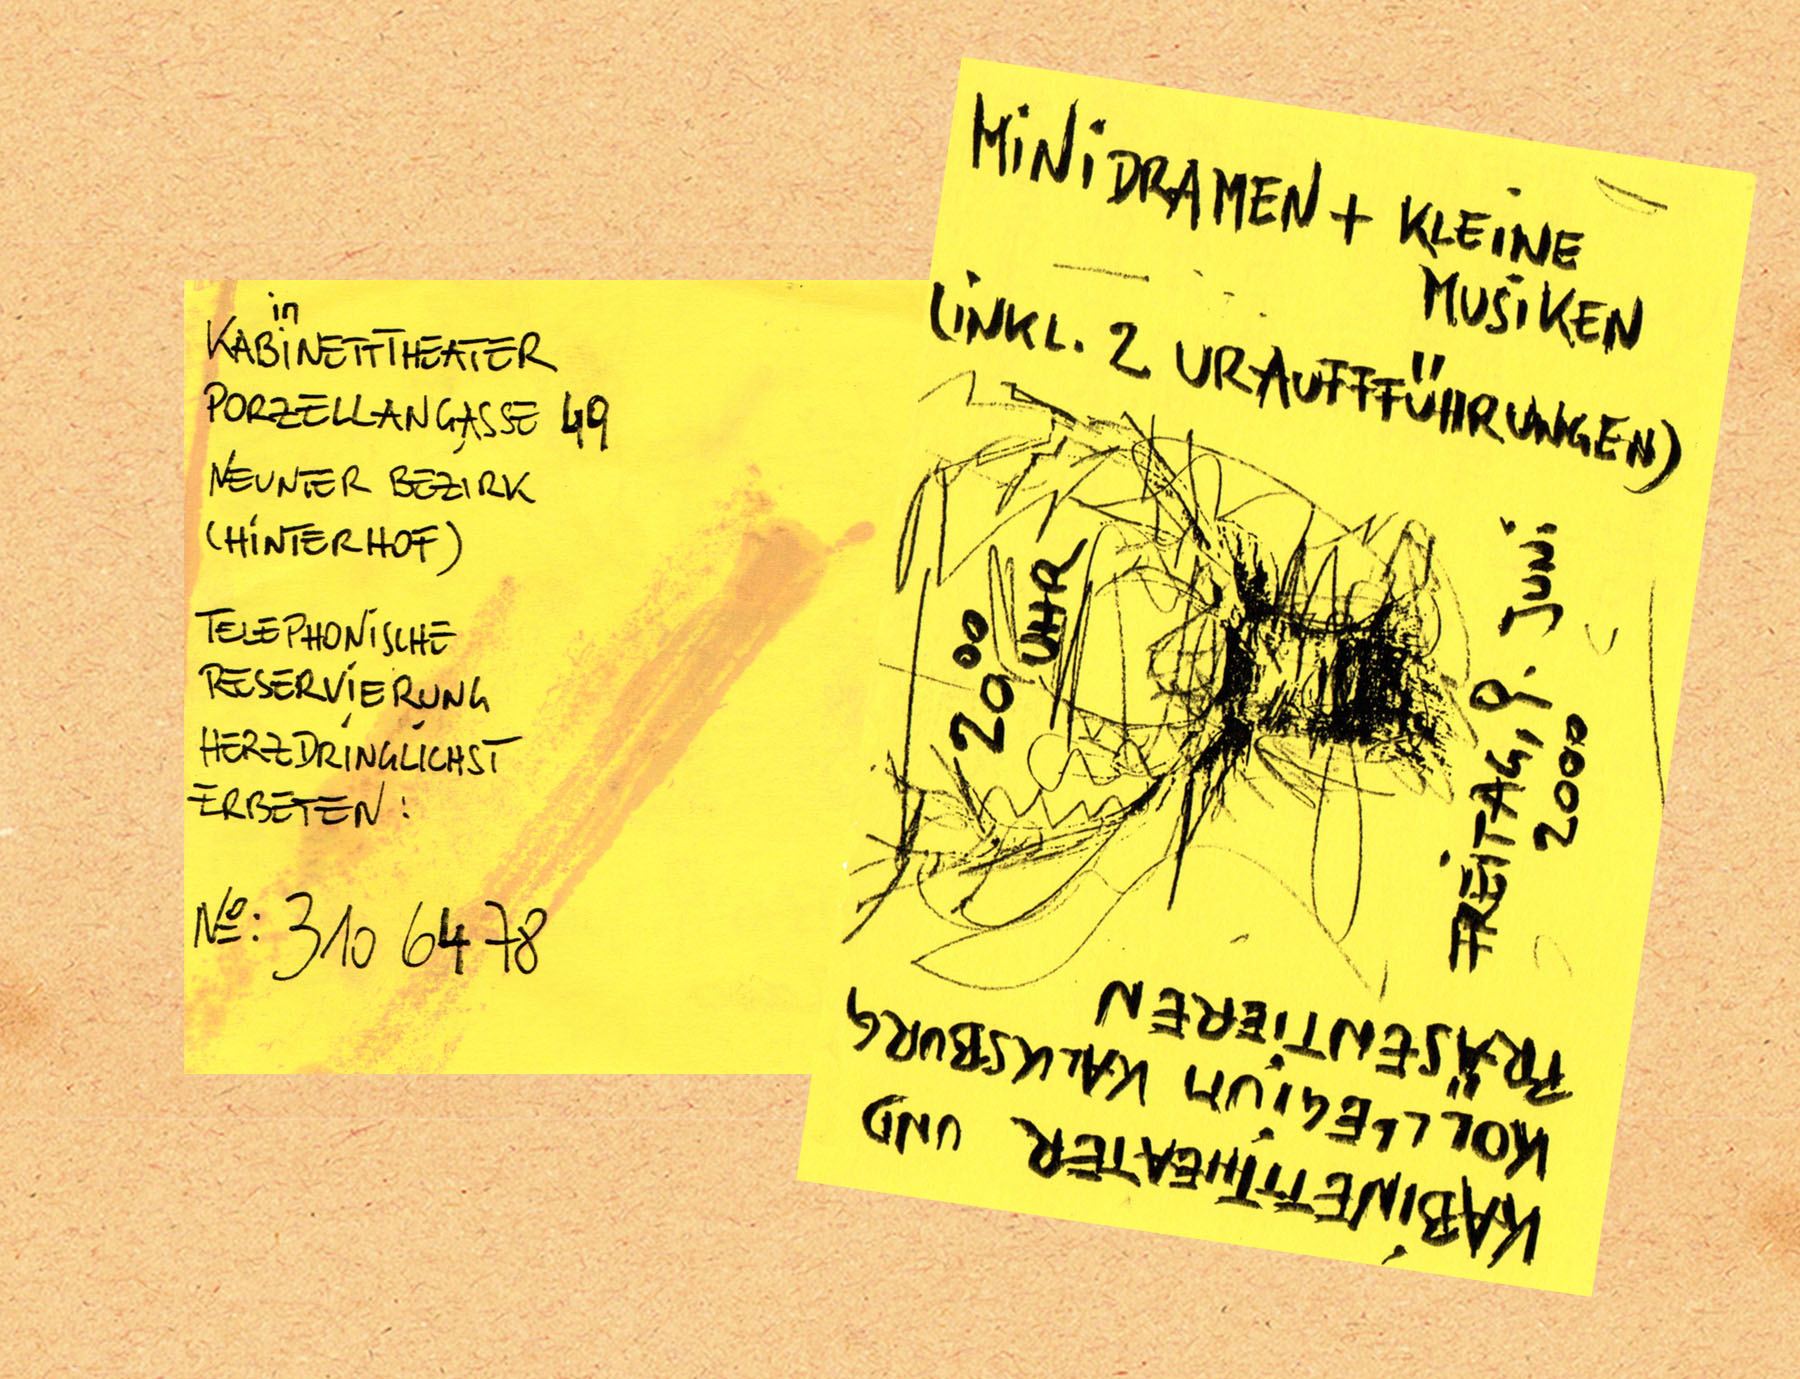 in
KABINETTTHEATER
PORZELLANGASSE 49
NEUNTER BEZIRK
(HINTERHOF)
TELEPHONISCHE
RESERVIERUNG
HERZDRINGLICHST
ERBETEN:
No: 310 64 78
MINIDRAMEN + KLEINE
MUSIKEN
(INKL. 2 URAUFFFÜHRUNGEN)
20 00
UHR
FREITAG, 9. Juni
2000
KABINETTTHEATER UND
KOLLEGIUM KALKSBURG
PRÄSENTIEREN